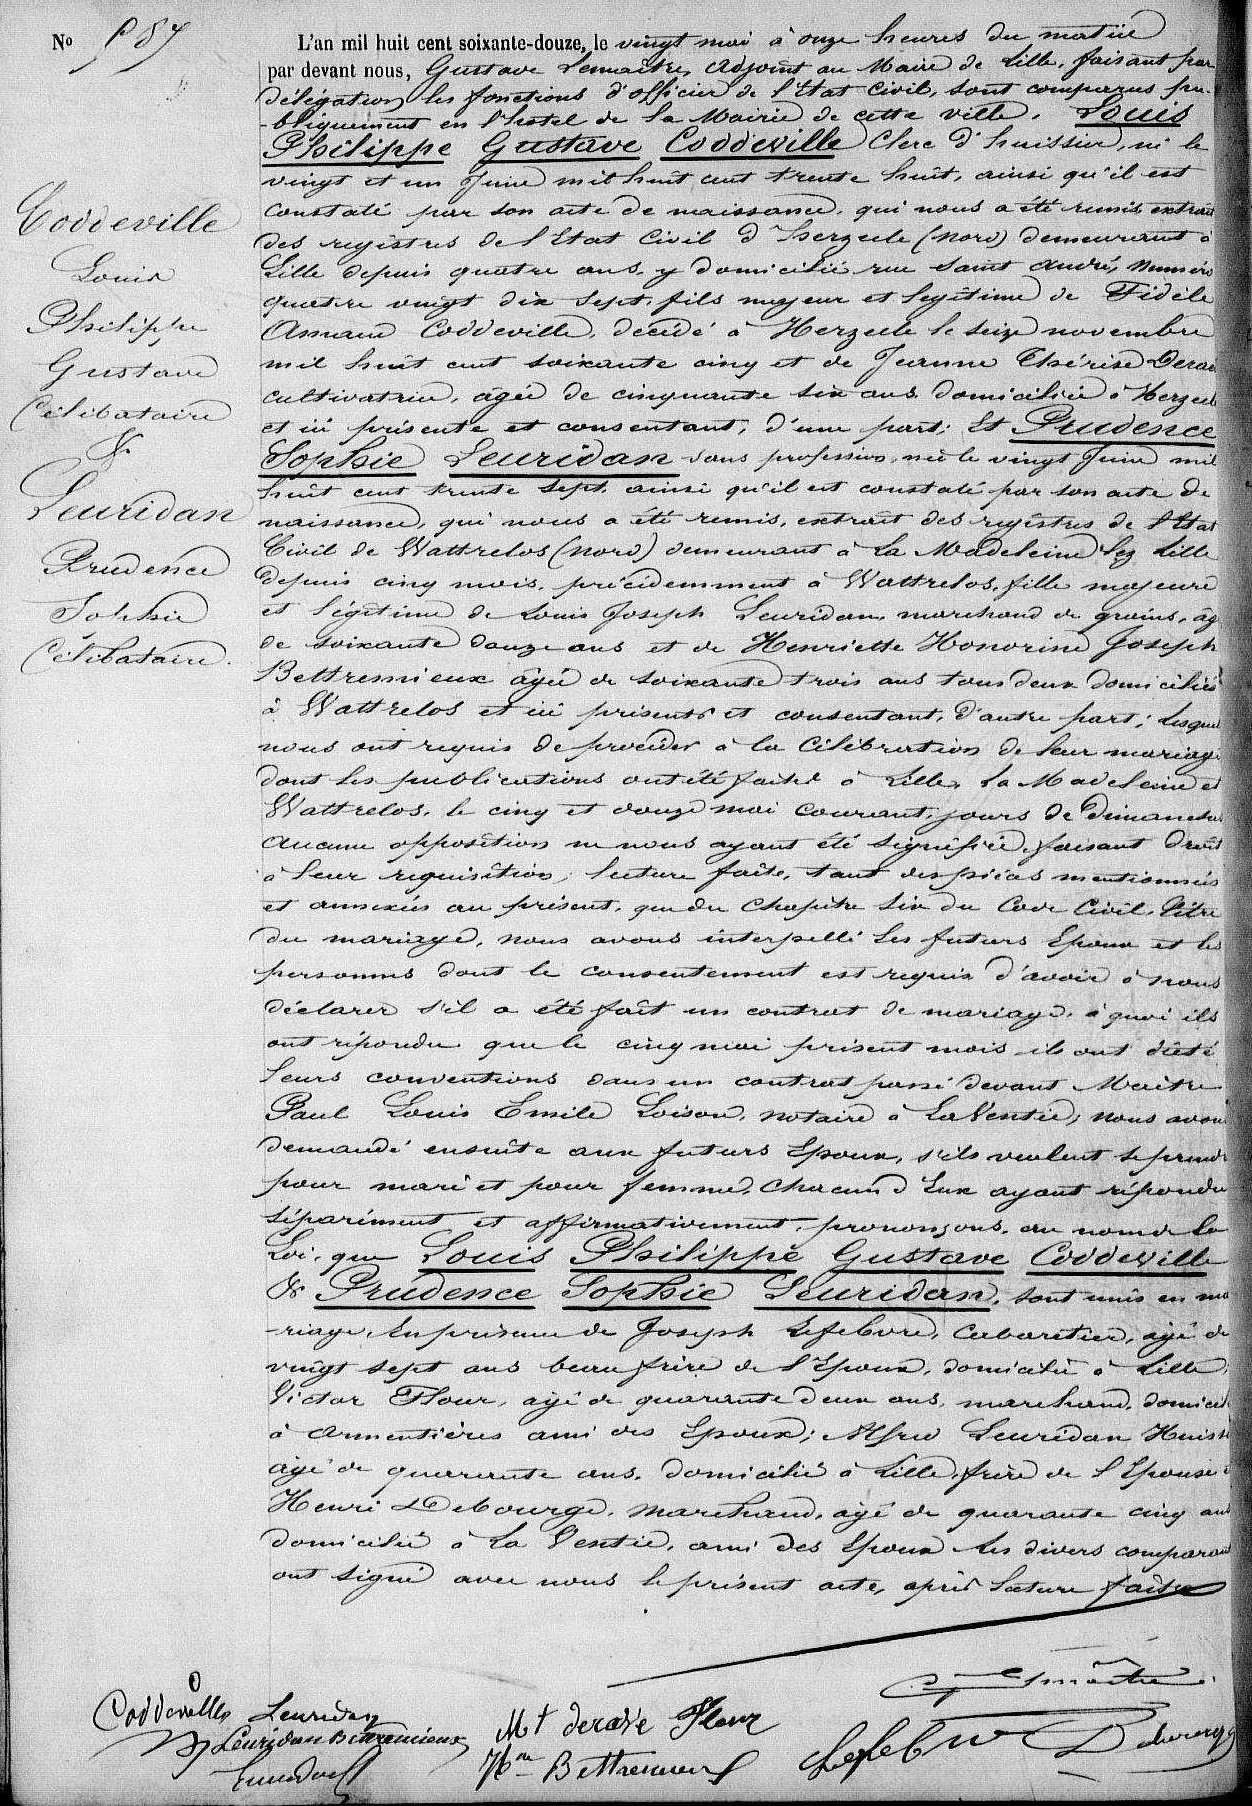 No 587
L'an mil huit cent soixante-douze, le vingt mai à onze heures du matin
par devant nous, Gustave Lemaitre, Adjoint au Maire de Lille, faisant par
délégation les fonctions d'officier de l'Etat Civil, sont comparus pu-
-bliquement en l'hotel de la Mairie de cette ville. Louis
Philippe Gustave Coddeville Clerc d'huissier, né le
vingt et un Juin mil huit cent trente huit, ainsi qu'il est
constaté par son acte de naissance, qui nous a été remis, extrait
des registres de l'Etat Civil d'herzeele (Nord) demeurant à
Lille depuis quatre ans, y domicilié rue Saint André, Numéro
quatre vingt dix sept, fils majeur et légitime de Fidèle
Amand Coddeville, décédé à Herzeele le seize novembre
mil huit cent soixante cinq et de Jeanne Thérèse
cultivatrice, agée de cinquante six ans domiciliée à Herzeele
et ici présente et consentant, d'une part; Et Prudence
Sophie Leuridan sans profession, née le vingt Juin mil
huit cent trente sept, ainsi qu'il est constaté par son acte de
naissance, qui nous a été remis, extrait des registres de l'Etat
Civil de Wattrelos (Nord) demeurant à La Madeleine lez Lille
depuis cinq mois, précédemment à Wattrelos, fille majeure
et légitime de Louis Joseph Leuridan, marchand de grains, âg
de soixante douze ans et de Henriette Honorine Joseph
Bettremieux âgée de soixante trois ans tous deux domiciliés
à Wattrelos et ici présents et consentant, d'autre part; lesquel
nous ont requis de procéder à la célébration de leur mariage
dont les publications ont été faites à Lille, La Madeleine et
Wattrelos, le cinq et douze mai courant, jours de Dimanche
aucune opposition ne nous ayant été signifiée, faisant droit
à leur requisition, lecture faite, tant des pièces mentionnées
et annexées au présent, que du chapitre six du Code Civil, titre
du mariage, nous avons interpellé les futurs Epoux et les
personnes dont le consentement est requis d'avoir à nous
déclarer s'il a été fait un contrat de mariage, à quoi ils
ont répondu que le cinq mai présent mois ils ont dicté
leurs conventions dans un contrat passé devant Maitre
Paul Louis Emile Loison, notaire à La Ventie, nous avons
demandé ensuite aux futurs Epoux, s'ils veulent se prendre
pour mari et pour femme, chacun d'Eux ayant répondu
séparément et affirmativement, prononçons, au nom de la
Loi, que Louis Philippe Gustave Coddeville
& Prudence Sophie Leuridan, sont unis en ma
-riage, En présence de Joseph Lefebvre, Cabaretier, agé de
vingt sept ans beau frère de l'Epoux, domicilié à Lille,
Victor Flour, agé de quarante deux ans, marchand, domicilié
à Armentières ami des Epoux; Alfred Leuridan Huissi
âgé de quarante ans, domicilié à Lille, frère de l'Epouse
Henri Debourge, marchand, agé de quarante cinq ans
domicilié à La Ventie, ami des Epoux les divers comparant
ont signé avec nous le présent acte, après lecture faite
Coddeville
Louis
Philippe
Gustave
Célibataire
&
Leuridan
Prudence
Sophie
Célibataire.
G Lemaitre
Coddeville Leuridan
Leuridan Bettremieux
Mt derave Flour
Hne Bettremieux
Lefebvre Debourge